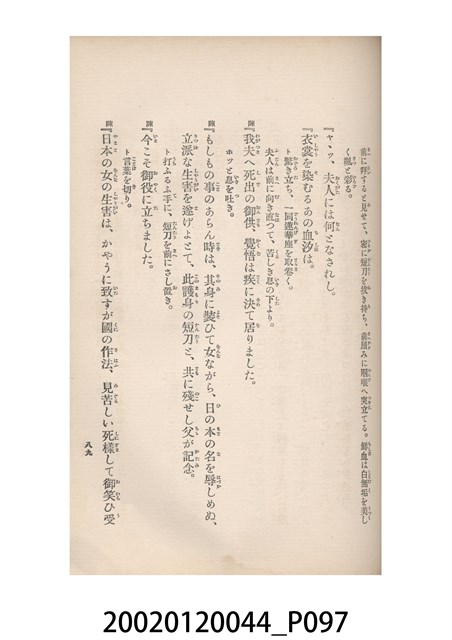 前に拜すると見せて、密に短刀を拔き持ち、前屈みに咽喉へ突立てる。鮮血は白無垢を美し
く颯と彩る。
『ヤ、ッ、夫人には何となされし。
『衣裳を染むるあの血汐は。
ト驚き立ち、一同蓮華座を取卷く。
夫人は前に向き直つて、苦しき息の下より。
陳『我夫へ死出の御供、覺悟は疾に決て居りました。
ホッと息を吐き。
陳『もしもの事のあらん時は、其身に裝ひて女ながら、日の本の名を辱しめぬ、
立派な生害を遂げよとて、此護身の短刀と、共に殘せし父が記念。
ト打ふるふ手に、短刀を前にさし置き。
陳『今こそ御役に立ちました。
ト言葉を切り。
陳『日本の女の生害は、かやうに致すが國の作法、見苦しい死樣して御笑ひ受
八九
20020120044_P097